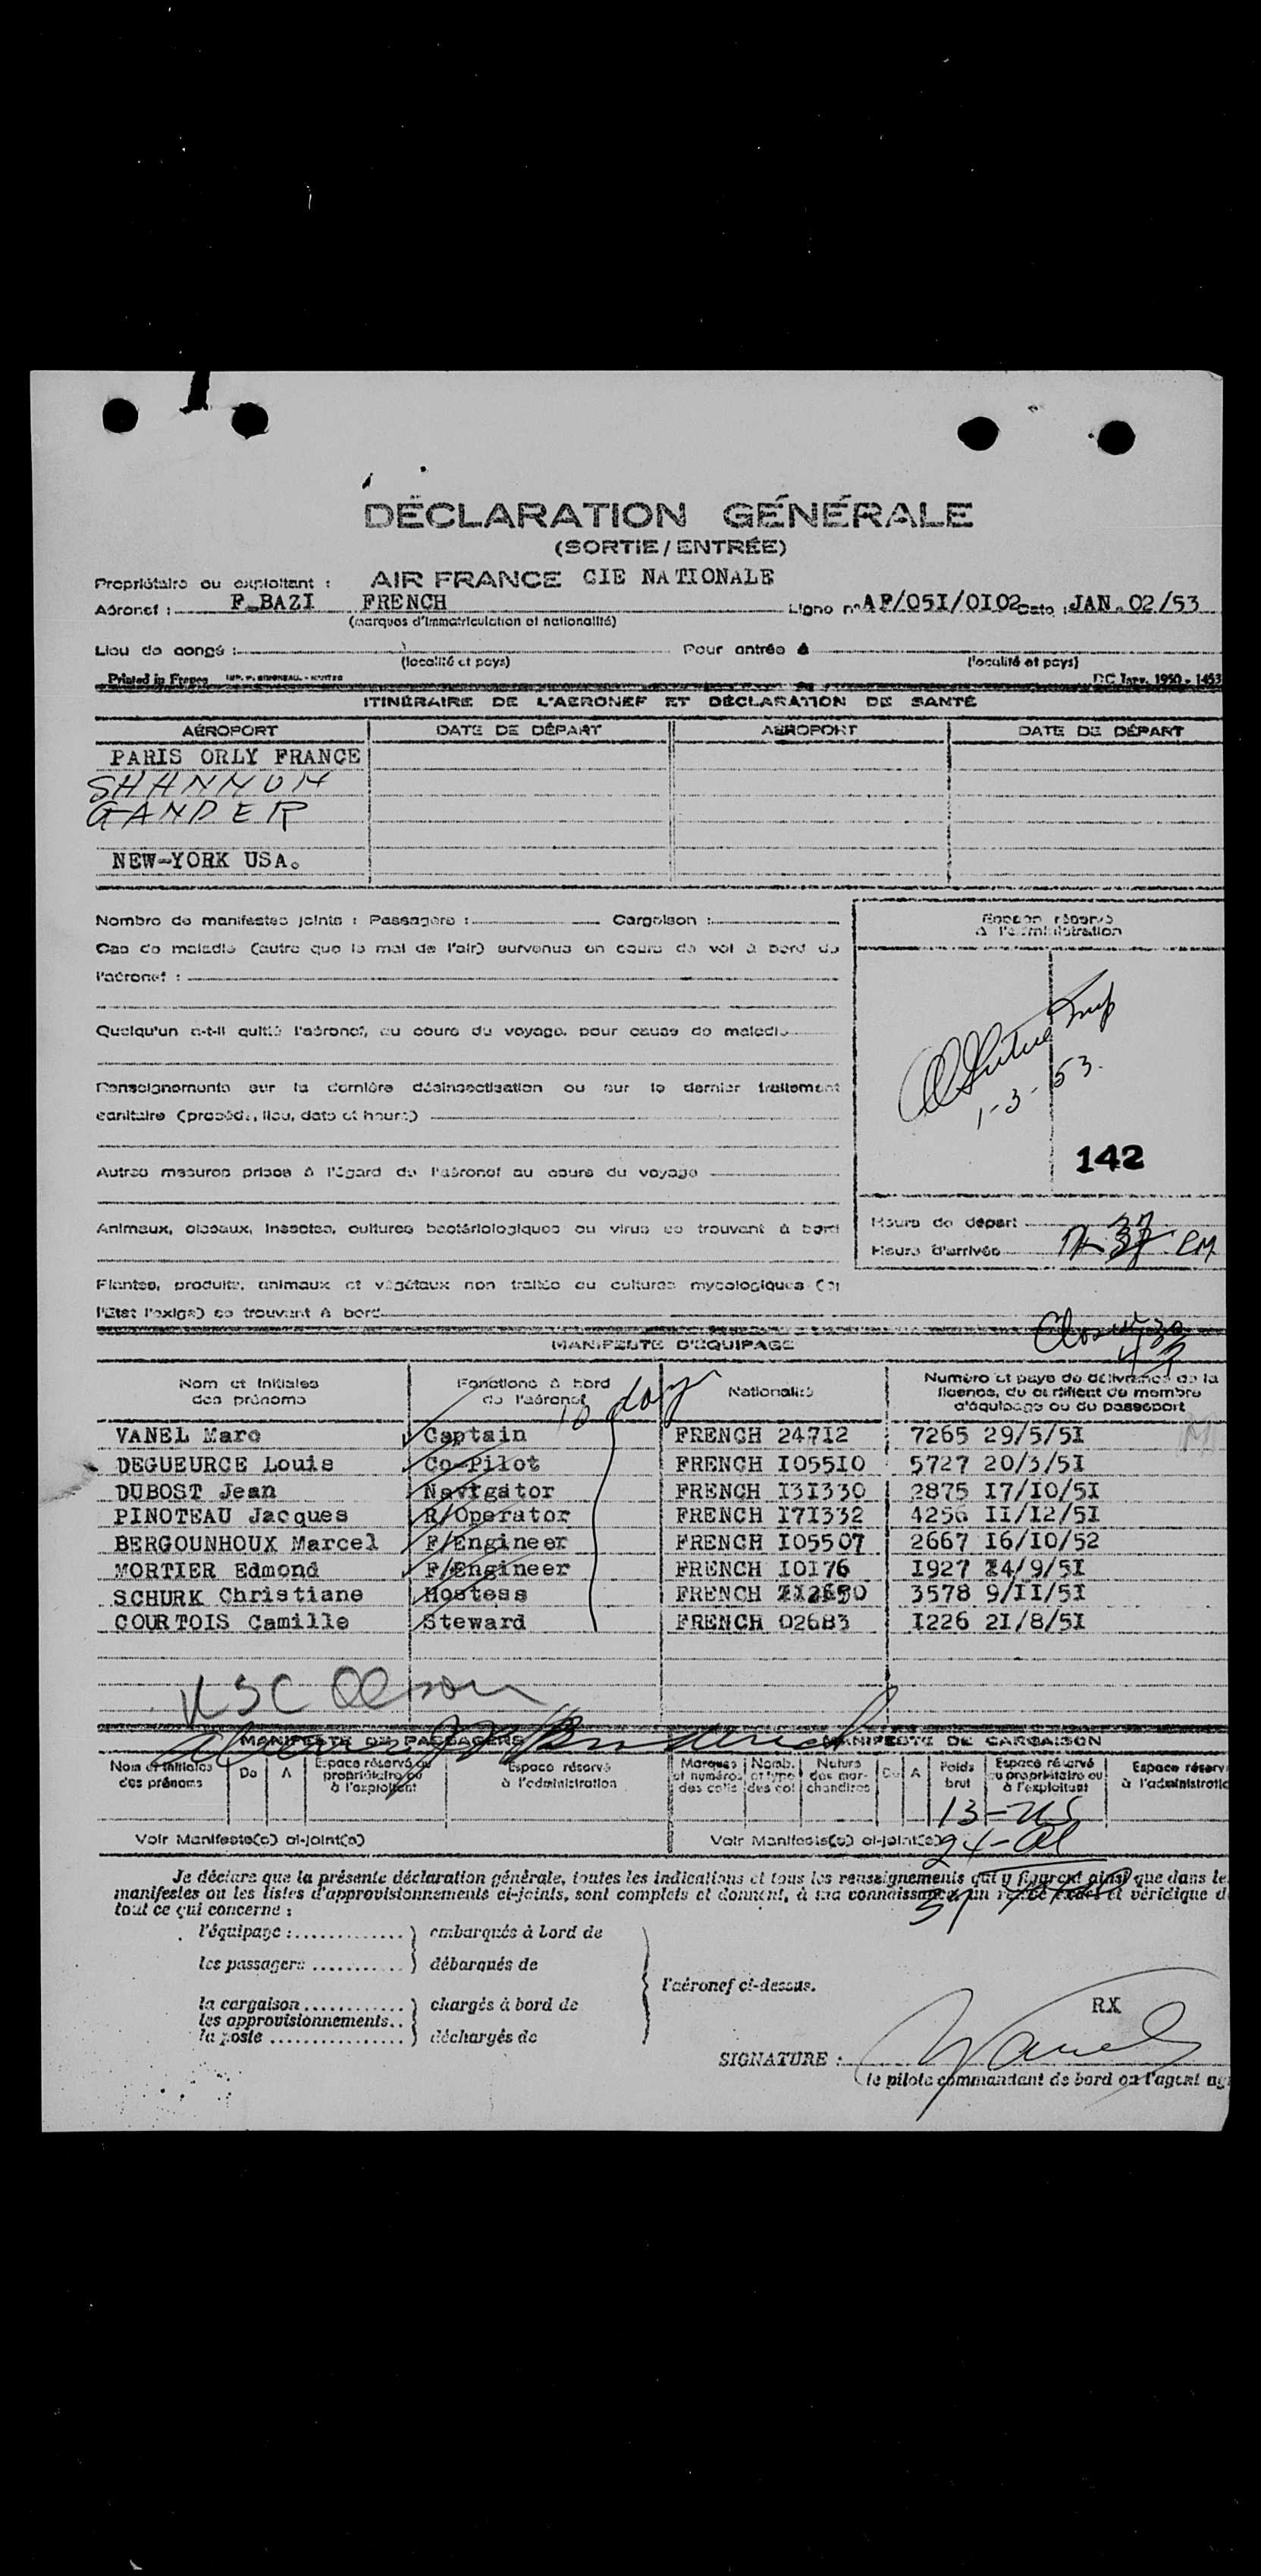 DÉCLARATION GÉNÉRALE
(SORTIE / ENTRÉE)
Propriétaire ou exploitant : AIR FRANCE CIE NATIONALE
Aéronef : F-BAZI FRENCH Ligne n° AF/05I/0I02 Date : JAN. 02/53
(marques d'immatriculation et nationalité)
Lieu de congé : Pour entrée à
(localité et pays) (localité et pays)
Printed in France
ITINÉRAIRE DE L'AERONEF ET DÉCLARATION DE SANTÉ
AÉROPORT DATE DE DÉPART AÉROPORT DATE DE DÉPART
PARIS ORLY FRANCE
SHANNON
GANDER
NEW-YORK USA.
Nombre de manifestes joints : Passagers : Cargaison :
Cas de maladie (autre que le mal de l'air) survenus en cours de vol à bord de
l'aéronef :
Quelqu'un a-t-il quitté l'aéronef, au cours du voyage, pour cause de maladie
Renseignements sur la dernière désinsectisation ou sur le dernier traitement
sanitaire (procédé, lieu, date et heure)
Autres mesures prises à l'égard de l'aéronef au cours du voyage
Animaux, oiseaux, insectes, cultures bactériologiques ou virus se trouvant à bord
Plantes, produits, animaux et végétaux non traités ou cultures mycologiques (si
l'Etat l'exige) se trouvant à bord
Espace réservé
à l'administration
1-3-53.
142
Heure de départ
Heure d'arrivée PM
MANIFESTE D'ÉQUIPAGE
Nom et initiales
des prénoms
Fonctions à bord
de l'aéronef
Nationalité
Numéro et pays de délivrance de la
licence, du certificat de membre
d'équipage ou du passeport
VANEL Marc Captain FRENCH 247I2 7265 29/5/5I
DEGUEURCE Louis Co-Pilot FRENCH I055I0 5727 20/3/5I
DUBOST Jean Navigator FRENCH I3I330 2875 I7/I0/5I
PINOTEAU Jacques R/Operator FRENCH I7I332 4256 II/I2/5I
BERGOUNHOUX Marcel F/Engineer FRENCH I05507 2667 I6/I0/52
MORTIER Edmond F/Engineer FRENCH I0I76 I927 /9/5I
SCHURK Christiane Hostess FRENCH 3578 9/II/5I
COURTOIS Camille Steward FRENCH 02683 I226 2I/8/5I
MANIFESTE DE PASSAGERS MANIFESTE DE CARGAISON
Nom et initiales
des prénoms
De A
Espace réservé au
propriétaire ou
à l'exploitant
Espace réservé
à l'administration
Marques
et numéros
des colis
Nomb.
et type
des col
Nature
des mar-
chandises
De A
Poids
brut
Espace réservé
au propriétaire ou
à l'exploitant
Espace réserv
à l'administratio
13-US
Voir Manifeste(s) ci-joint(s) Voir Manifeste(s) ci-joint(s)
Je déclare que la présente déclaration générale, toutes les indications et tous les renseignements qui y figurent ainsi que dans le
manifestes ou les listes d'approvisionnements ci-joints, sont complets et donnent, à ma connaissance, un et véridique d
tout ce qui concerne :
l'équipage : ) embarqués à bord de
les passagers ) débarqués de
l'aéronef ci-dessus.
la cargaison ) chargés à bord de
les approvisionnements..
la poste ) déchargés de
RX
SIGNATURE : Vanel
(le pilote commandant de bord ou l'agent ag